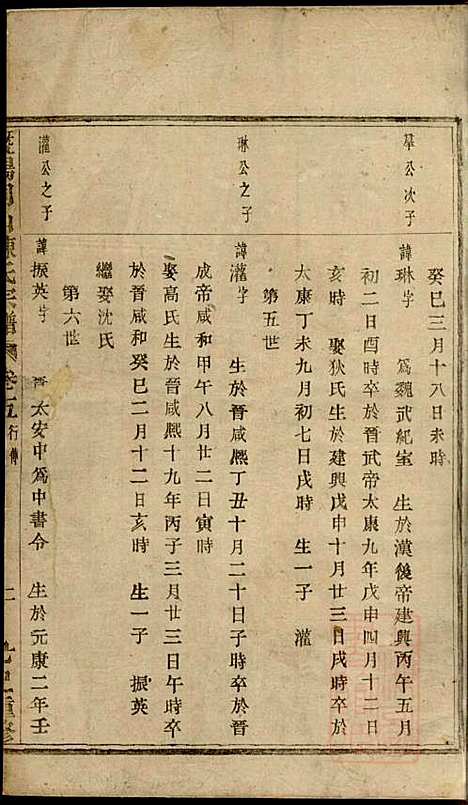 癸巳三月十八日未時
羣公次子
諱琳字 爲魏武紀室 生於漢後帝建興丙午五月
初二日酉時卒於晉武帝太康九年戊申四月十二日
亥時 娶狄氏生於建興戊申十月廿三日戌時卒於
太康丁未九月初七日戌時 生一子 灌
第五世
琳公之子
諱灌字 生於晉咸熙丁丑十月二十日子時卒於晉
成帝咸和甲午八月廿二日寅時
娶高氏生於晉咸熙十九年丙子三月廿三日午時卒
於晉咸和癸巳二月十二日亥時 生一子 振英
繼娶沈氏
第六世
灌公之子
諱振英字 晉太安中爲中書令 生於元康二年壬
陳氏宗譜 卷之五 行傳 二